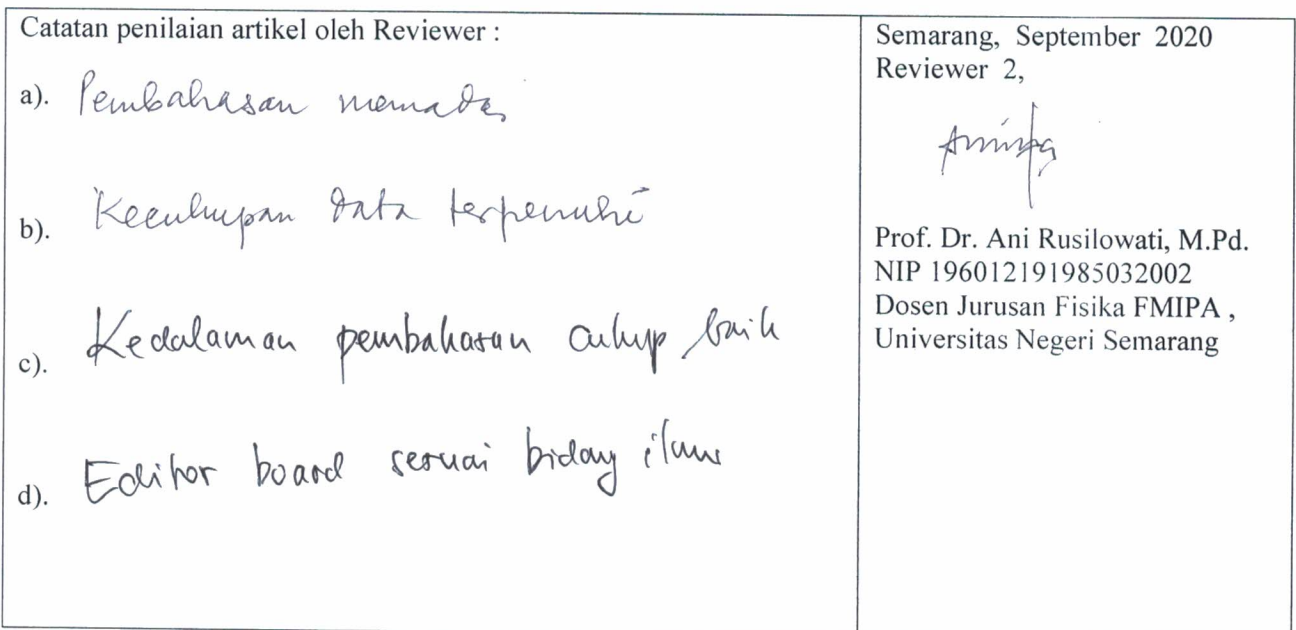 Catatan penilaian artikel oleh Reviewer :
a). Pembahasan memadai
b). Kecukupan data terpenuhi
c). Kedalaman pembahasan cukup baik
d). Editor board sesuai bidang ilmu
Semarang, September 2020
Reviewer 2,
Prof. Dr. Ani Rusilowati, M.Pd.
NIP 196012191985032002
Dosen Jurusan Fisika FMIPA ,
Universitas Negeri Semarang